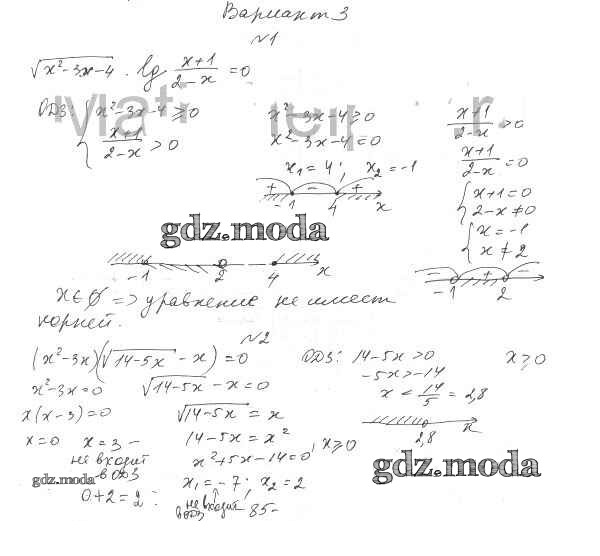 Вариант 3
№1
√x²-3x-4 · lg x+1/2-x = 0
ОДЗ: { x²-3x-4 ≥ 0
x+1/2-x > 0
x²-3x-4 ≥ 0
x²-3x-4 = 0
x₁ = 4; x₂ = -1
+ - +
-1 4 x
x+1/2-x > 0
x+1/2-x = 0
{ x+1=0
2-x≠0
{ x=-1
x≠2
- + -
-1 2
gdz.moda
-1 2 4 x
x∈∅ => уравнение не имеет
корней.
№2
(x²-3x)(√14-5x - x) = 0
x²-3x=0
x(x-3)=0
x=0 x=3 -
не входит
в ОДЗ
0+2=2
√14-5x - x = 0
√14-5x = x
14-5x = x², x≥0
x²+5x-14=0
x₁=-7; x₂=2
не входит
в ОДЗ
ОДЗ: 14-5x > 0 x ≥ 0
-5x > -14
x < 14/5 = 2,8
2,8 x
gdz.moda
gdz.moda